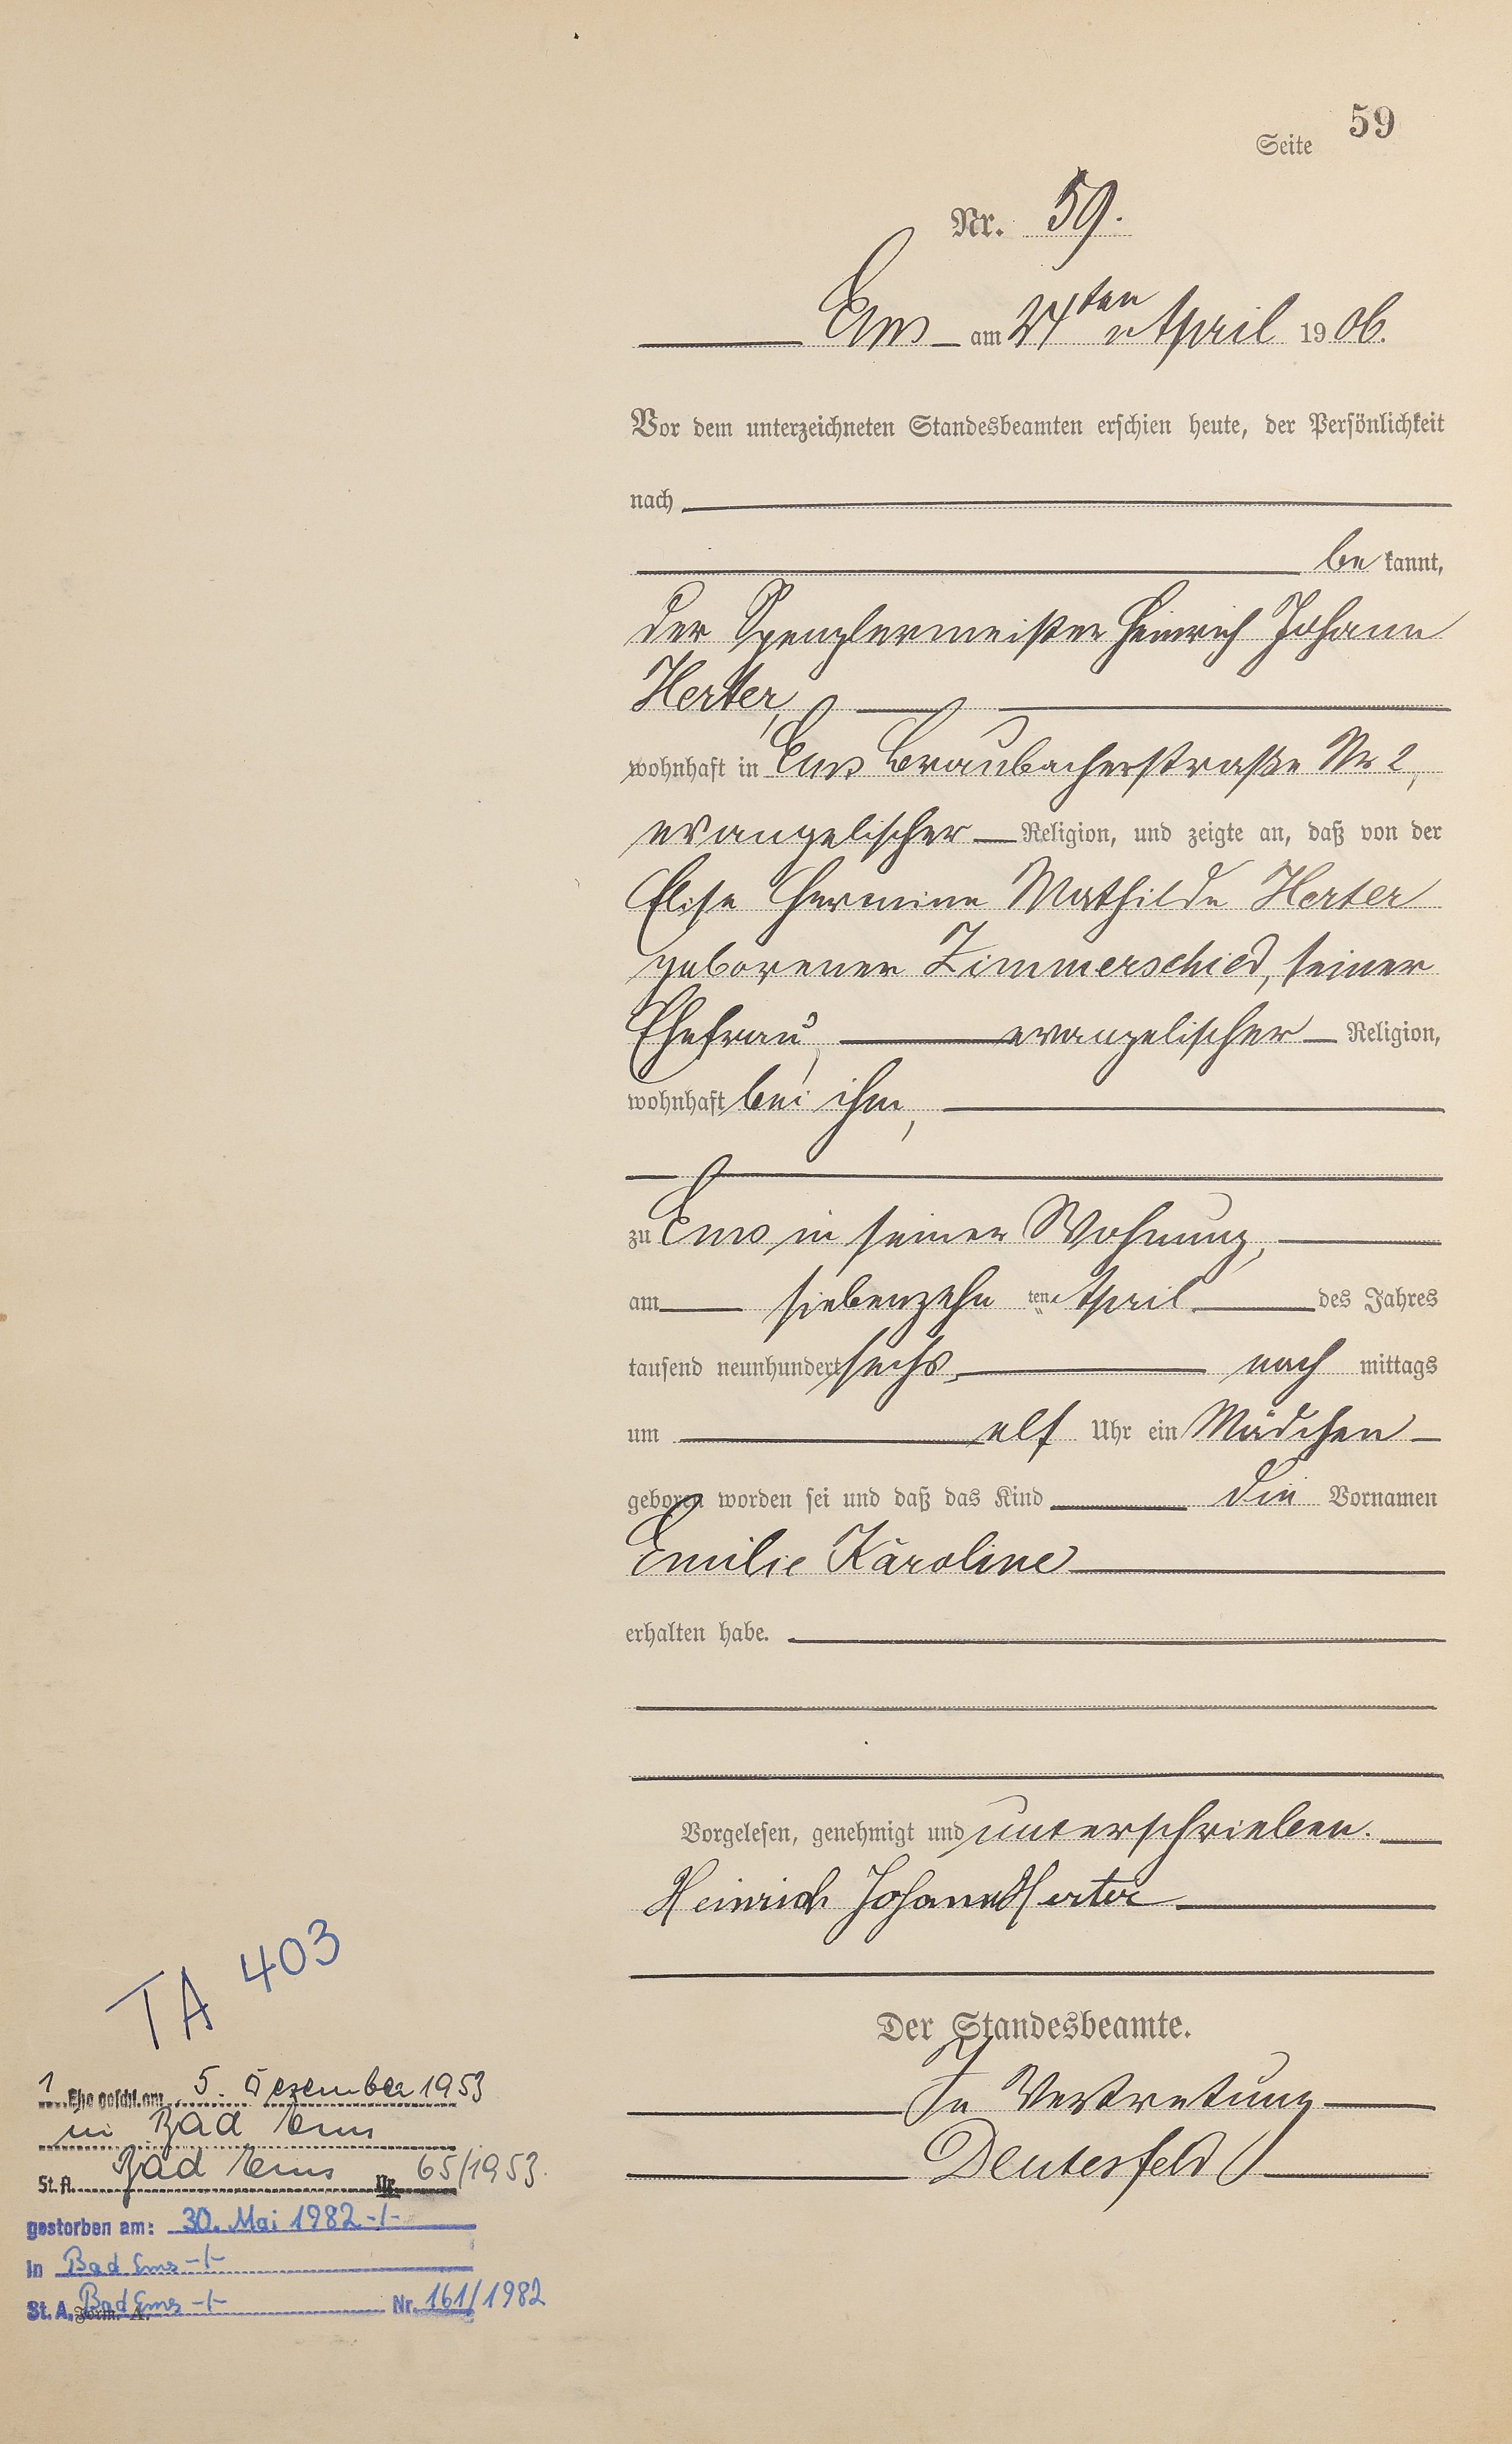 Seite 59
Nr. 59.
Ems am 24ten April 1906.
Vor dem unterzeichneten Standesbeamten erschien heute, der Persönlichkeit
nach
be kannt,
der Spenglermeister Heinrich Johann
Herter,
wohnhaft in Ems Braubacherstraße Nr 2,
evangelischer Religion, und zeigte an, daß von der
Elise Hermine Mathilde Herter
geborener Zimmerschied, seiner
Ehefrau, evangelischer Religion,
wohnhaft bei ihm,
zu Ems in seiner Wohnung,
am siebenzehn ten April des Jahres
tausend neunhundert sechs, nach mittags
um elf Uhr ein Mädchen
geboren worden sei und daß das Kind die Vornamen
Emilie Karoline
erhalten habe.
Vorgelesen, genehmigt und unterschrieben.
Heinrich Johann Herter
Der Standesbeamte.
In Vertretung
Deutesfeld
TA 403
1. Ehe geschl. am 5. Dezember 1953
in Bad Ems
St. A. Bad Ems Nr. 65/1953.
gestorben am: 30. Mai 1982 -/-
in Bad Ems -/-
St. A. Bad Ems -/- Nr. 161/1982
Form. A.